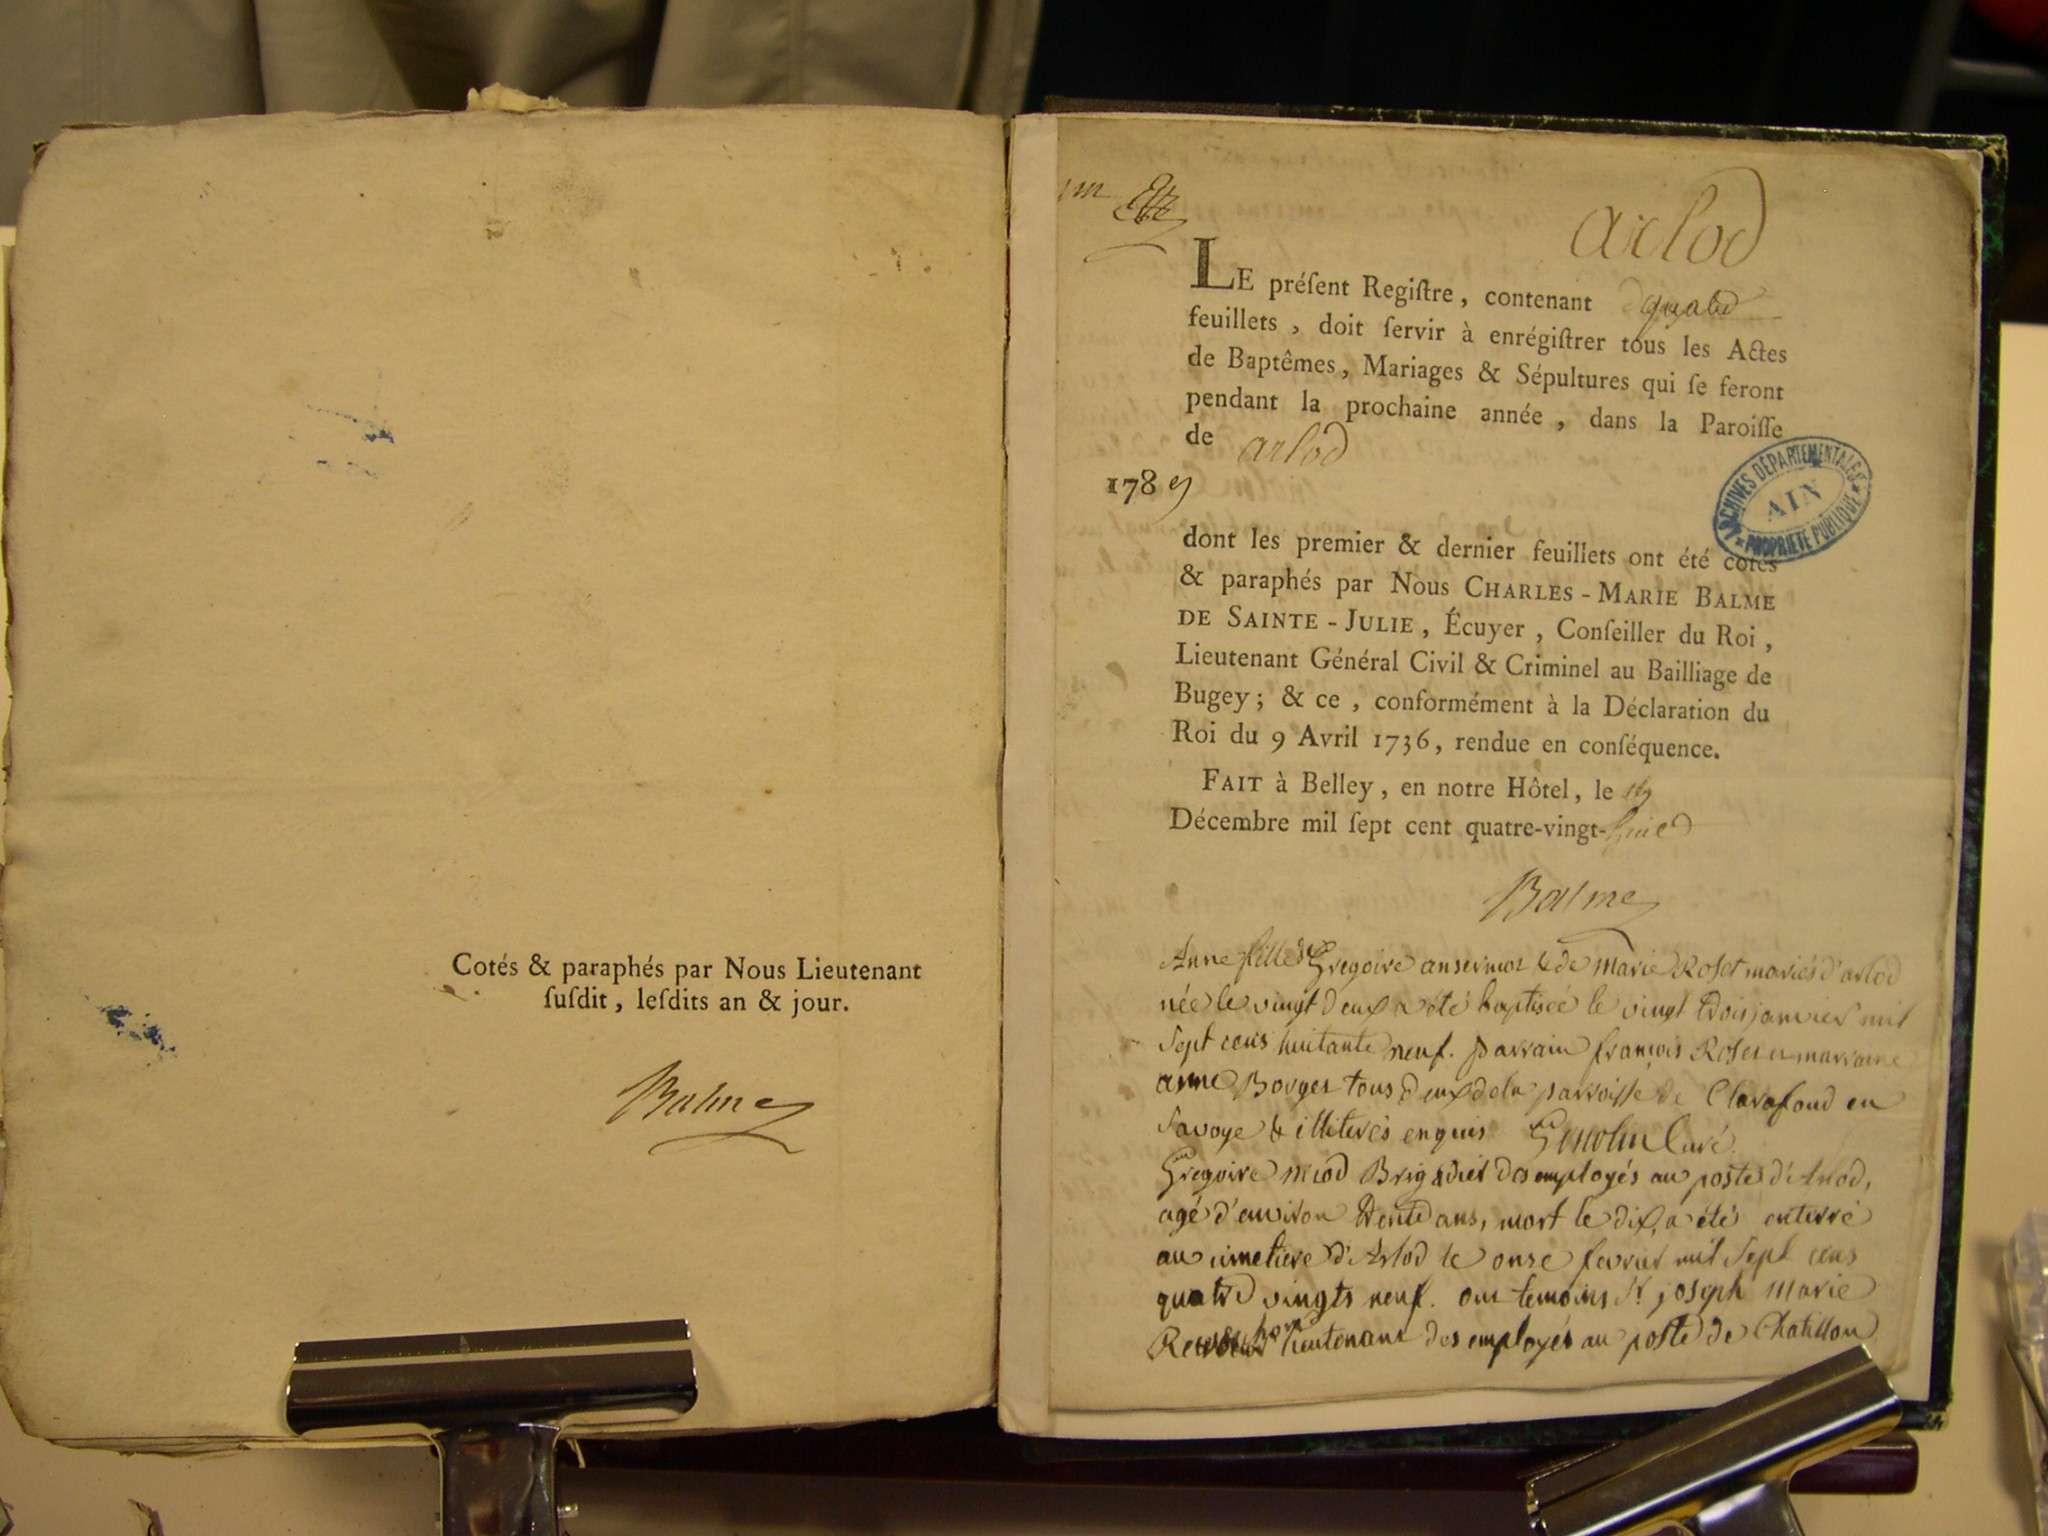 Cotés & paraphés par Nous Lieutenant
ſuſdit, leſdits an & jour.
Balme
arlod
LE préſent Regiſtre, contenant quatre
feuillets, doit ſervir à enrégiſtrer tous les Actes
de Baptêmes, Mariages & Sépultures qui ſe feront
pendant la prochaine année, dans la Paroiſſe
de arlod
1789
ARCHIVES DÉPARTEMENTALES
AIN
PROPRIÉTÉ PUBLIQUE
dont les premier & dernier feuillets ont été cotés
& paraphés par Nous CHARLES-MARIE BALME
DE SAINTE-JULIE, Écuyer, Conſeiller du Roi,
Lieutenant Général Civil & Criminel au Bailliage de
Bugey; & ce, conformément à la Déclaration du
Roi du 9 Avril 1736, rendue en conſéquence.
FAIT à Belley, en notre Hôtel, le
Décembre mil ſept cent quatre-vingt-huit
Balme
Anne fille de Gregoire ansermoz & de Marie Roset mariés d'arlod
née le vingt deux a été baptisée le vingt trois janvier mil
sept cens huitante neuf. parrain françois Roset et marraine
anne Borges tous deux de la parroisse de Clarafond en
Savoye & illiterés enquis Genolin Curé.
Gregoire miod Brigadier des employés au poste d'Arlod,
agé d'environ trente ans, mort le dix, a été enterré
au cimetiere d'Arlod le onze fevrier mil sept cens
quatre vingts neuf. ont temoins Sr. joseph Marie
lieutenant des employés au poste de Chatillon